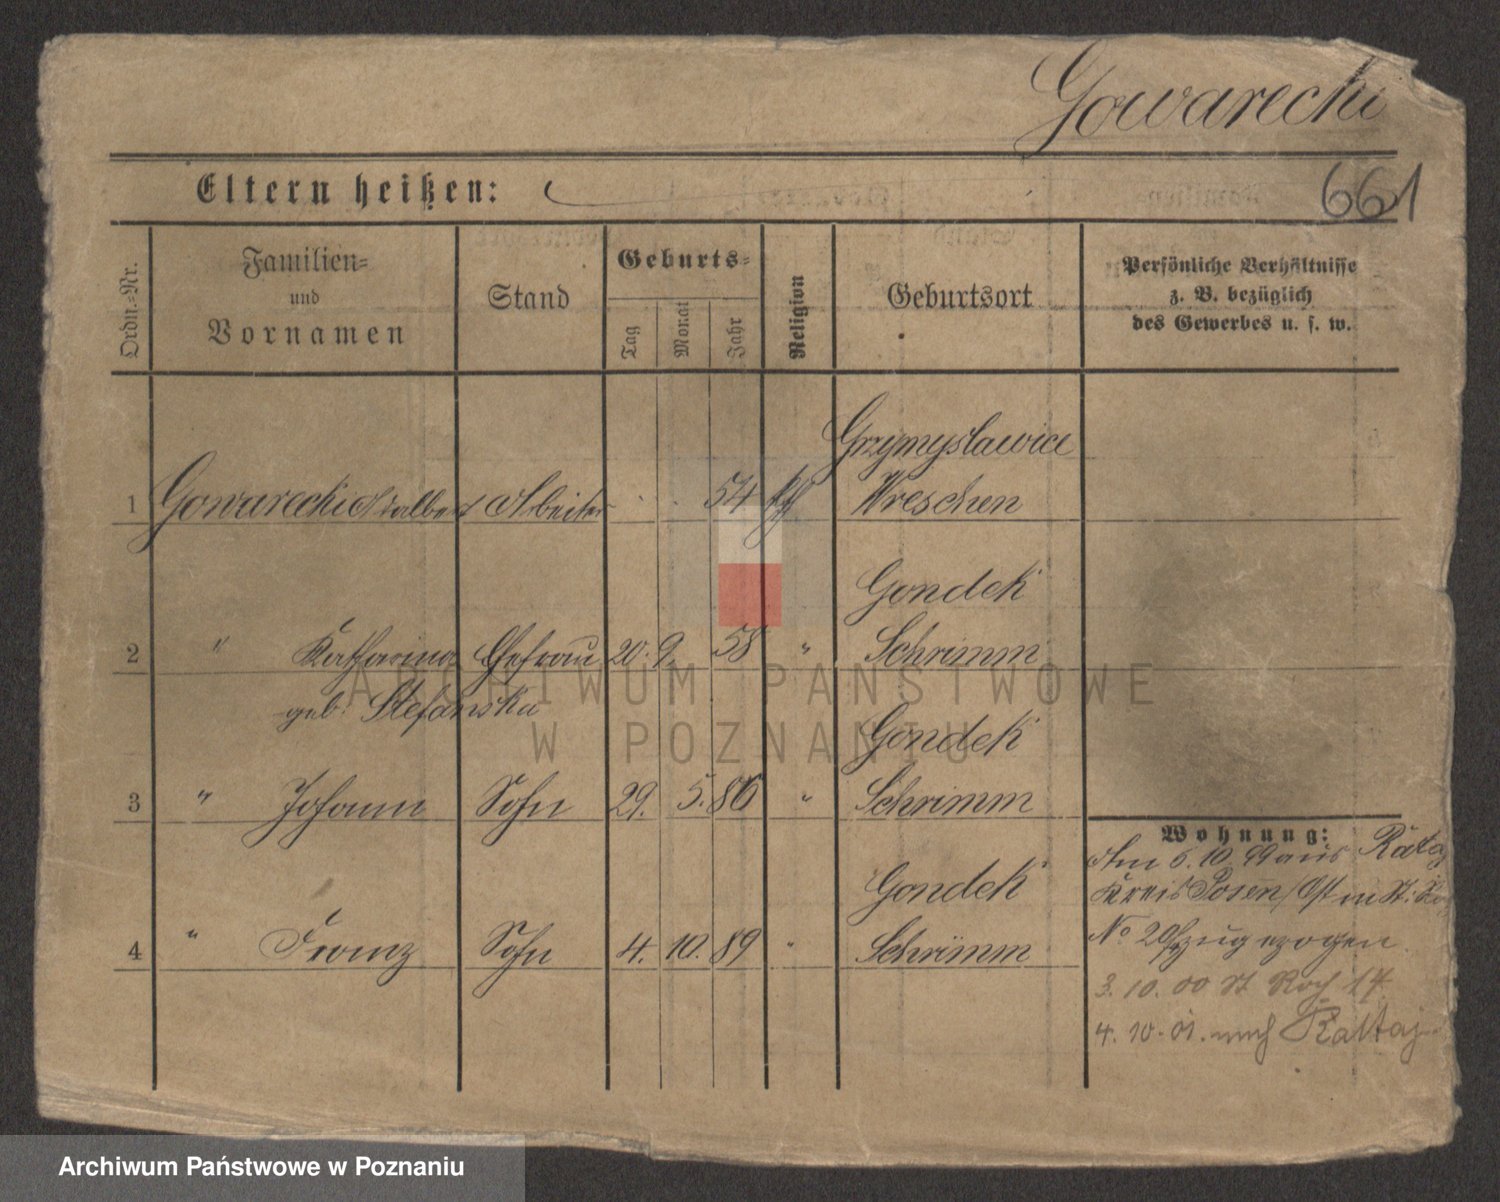 Gowarecki
Eltern heißen:
661
Ordn.=Nr.
Familien=
und
Vornamen
Stand
Geburts=
Tag
Monat
Jahr
Religion
Geburtsort
Persönliche Verhältnisse
z. B. bezüglich
des Gewerbes u. s. w.
Grzymyslawice
1 Gowarecki Adalbert Arbeiter 54 kth Wreschen
Gondek
2 " Katharina Ehefrau 20. 9. 58 " Schrimm
geb. Stefanska
Gondek
3 " Johann Sohn 29. 5. 86 " Schrimm
Gondek
4 " Franz Sohn 4. 10. 89 " Schrimm
Wohnung:
Am 6. 10. 99 aus Rataj
Kreis Posen/Ost in St:
No 20 zugezogen
3. 10. 00 St Roch 17
4. 10. 01. nach Rattaj
ARCHIWUM PAŃSTWOWE
W POZNANIU
Archiwum Państwowe w Poznaniu